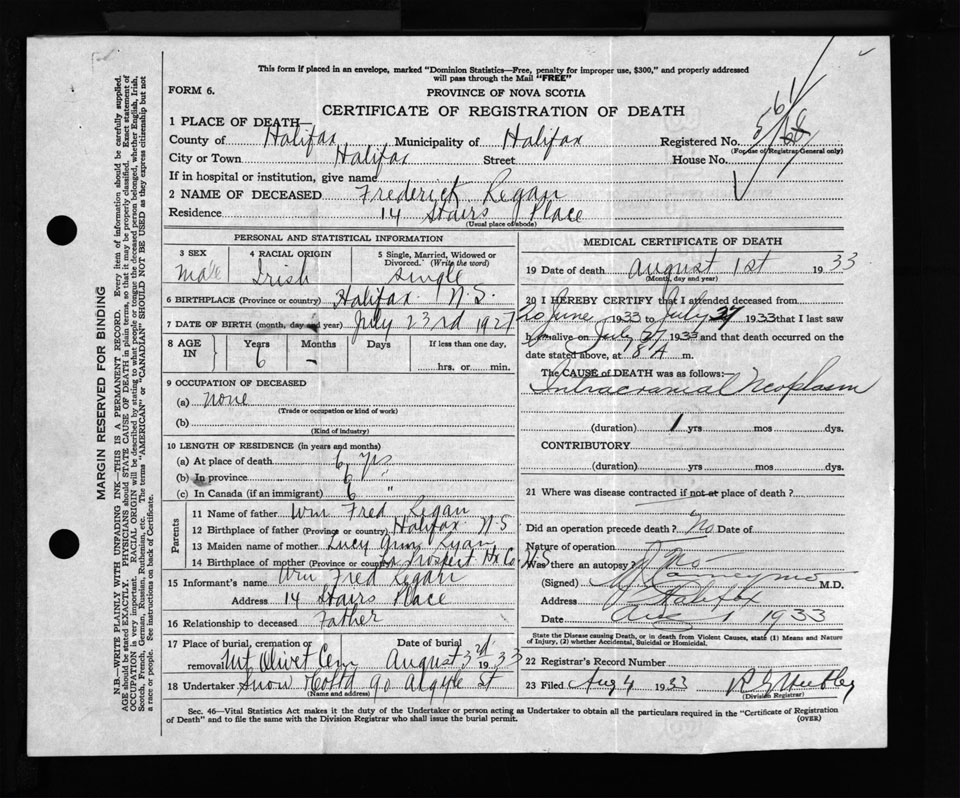 This form if placed in an envelope, marked "Dominion Statistics—Free, penalty for improper use, $300," and properly addressed
will pass through the Mail "FREE"
FORM 6.
PROVINCE OF NOVA SCOTIA
CERTIFICATE OF REGISTRATION OF DEATH
1 PLACE OF DEATH—
County of Halifax Municipality of Halifax Registered No.
(For use of Registrar General only)
City or Town Halifax Street House No.
If in hospital or institution, give name
2 NAME OF DECEASED Frederick Regan
Residence 14 Stairs Place
(Usual place of abode)
PERSONAL AND STATISTICAL INFORMATION
3 SEX 4 RACIAL ORIGIN 5 Single, Married, Widowed or
Divorced. (Write the word)
Male Irish Single
6 BIRTHPLACE (Province or country) Halifax N.S.
7 DATE OF BIRTH (month, day and year) July 23rd 1927
8 AGE IN Years Months Days If less than one day,
6 - hrs. or min.
9 OCCUPATION OF DECEASED
(a) none
(Trade or occupation or kind of work)
(b)
(Kind of industry)
10 LENGTH OF RESIDENCE (in years and months)
(a) At place of death 6 yrs
(b) In province 6
(c) In Canada (if an immigrant) 6 "
Parents
11 Name of father Wm Fred Regan
12 Birthplace of father (Province or country) Halifax N S
13 Maiden name of mother Lucy Ryan
14 Birthplace of mother (Province or country) Prospect Hx Co. N.S.
15 Informant's name Wm Fred Regan
Address 14 Stairs Place
16 Relationship to deceased Father
17 Place of burial, cremation or removal Mt Olivet Cem
Date of burial August 3rd 1933
18 Undertaker Snow & Co Ltd 90 Argyle St
(Name and address)
MEDICAL CERTIFICATE OF DEATH
19 Date of death August 1st 1933
(Month, day and year)
20 I HEREBY CERTIFY that I attended deceased from
20 June 1933 to July 27 1933 that I last saw
h im alive on July 27 1933 and that death occurred on the
date stated above, at 8 A m.
The CAUSE of DEATH was as follows:
Intracranial Neoplasm
(duration) 1 yrs mos dys.
CONTRIBUTORY
(duration) yrs mos dys.
21 Where was disease contracted if not at place of death?
Did an operation precede death? No Date of
Nature of operation
Was there an autopsy? No
(Signed) M.D.
Address Halifax
Date Aug 1 1933
State the Disease causing Death, or in death from Violent Causes, state (1) Means and Nature
of Injury, (2) whether Accidental, Suicidal or Homicidal.
22 Registrar's Record Number
23 Filed Aug 4 1933
(Division Registrar)
Sec. 46—Vital Statistics Act makes it the duty of the Undertaker or person acting as Undertaker to obtain all the particulars required in the "Certificate of Registration
of Death" and to file the same with the Division Registrar who shall issue the burial permit.
(OVER)
MARGIN RESERVED FOR BINDING
N.B.—WRITE PLAINLY WITH UNFADING INK—THIS IS A PERMANENT RECORD. Every item of information should be carefully supplied.
AGE should be stated EXACTLY. PHYSICIANS should STATE CAUSE OF DEATH in plain terms, so that it may be properly classified. Exact statement of
OCCUPATION is very important. RACIAL ORIGIN will be described by stating to what people or tongue the deceased person belonged, whether English, Irish,
Scotch, French, German, Russian, Ruthenian, etc. The terms "AMERICAN" or "CANADIAN" SHOULD NOT BE USED as they express citizenship but not
a race or people. See instructions on back of Certificate.